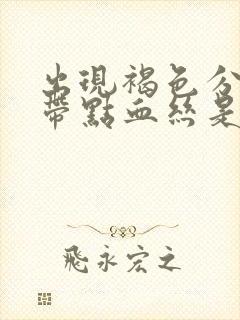 出現褐色分
帶點血絲是
飛永宏之